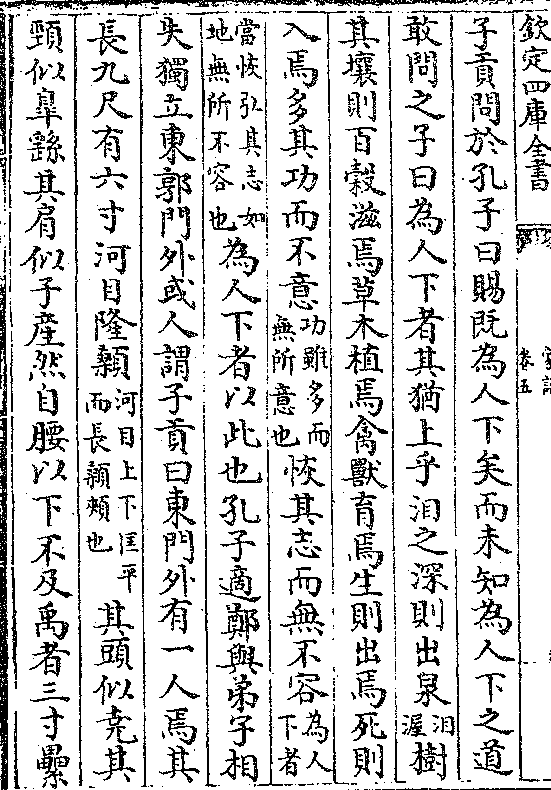 欽定四庫全書
家語
卷五
子貢問於孔子曰賜既為人下矣而未知為人下之道
敢問之子曰為人下者其猶土乎汩之深則出泉汩渥樹
其壤則百穀滋焉草木植焉禽獸育焉生則出焉死則
入焉多其功而不意功雖多而無所意也恢其志而無不容為人下者
當恢弘其志如地無所不容也為人下者以此也孔子適鄭與弟子相
失獨立東郭門外或人謂子貢曰東門外有一人焉其
長九尺有六寸河目隆顙河目上下匡平而長顙頰也其頭似堯其
頸似臯繇其肩似子産然自腰以下不及禹者三寸纍